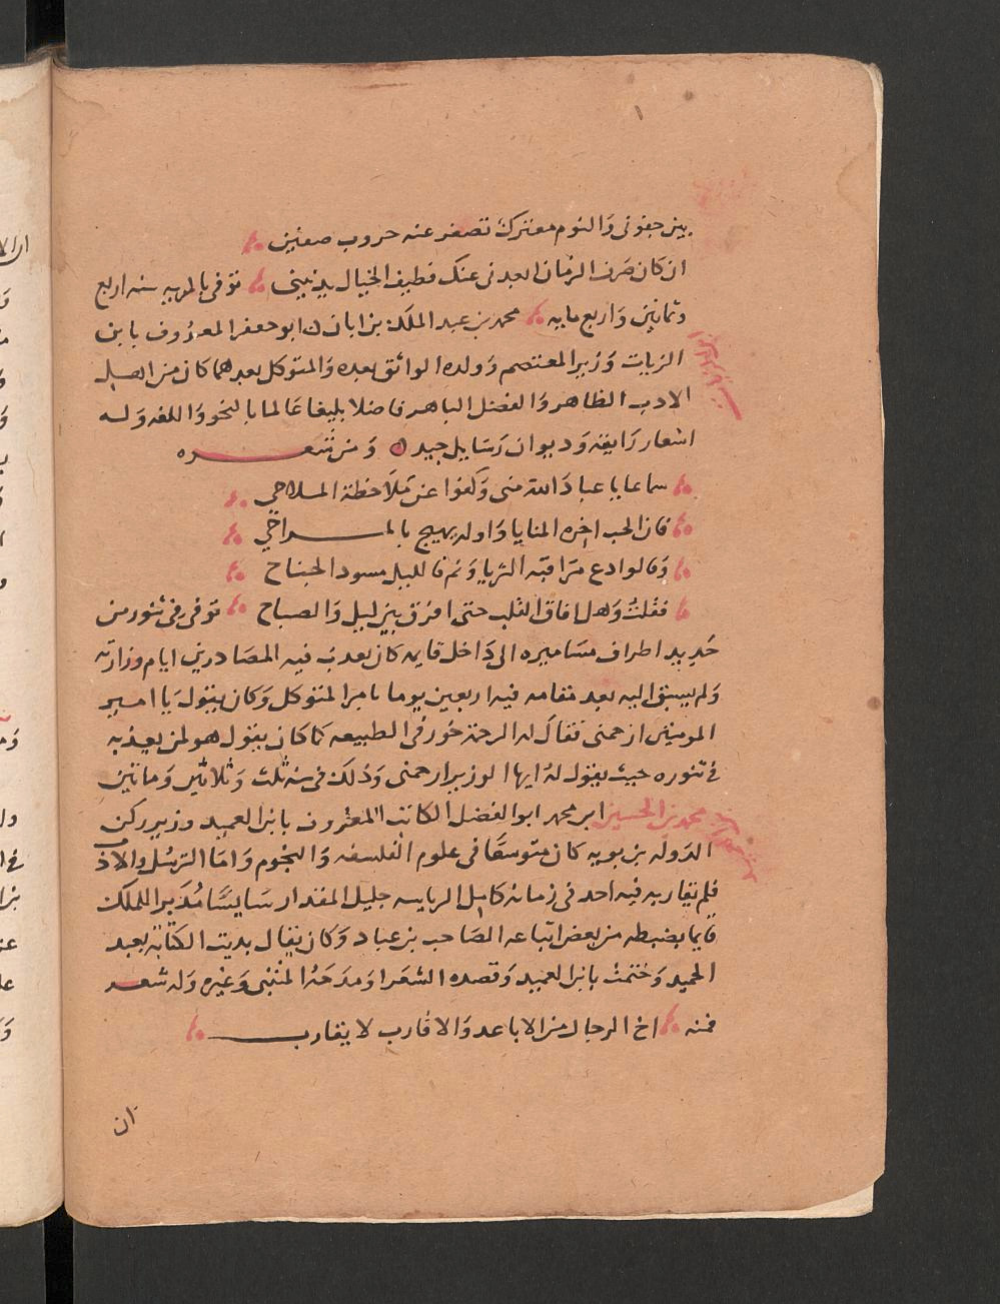 بين جفوني والنوم معترك تصغر عنه حروب صفين
ان كان صرف الزمان ابعدني عنك فطيف الخيال يدنيني توفي بالمريه سنه اربع
وثمانين واربع مايه محمد بن عبد الملك بن ابان ابو جعفر المعروف بابن
الزيات وزير المعتصم وولده الواثق بعده والمتوكل بعدهما كان من اهل
الادب الظاهر والفضل الباهر فاضلا بليغا عالما بالنحو واللغه وله
اشعار رايقه وديوان رسايل جيد ومن شعره
سماعا يا عباد الله مني وكفوا عن ملاحظة الملاحي
فان الحب اخره المنايا واوله يهيج بالمزاحي
وقالوا دع مراقبة الثريا ونم فالليل مسود الجناح
فقلت وهل افاق القلب حتى افرق بين ليل والصباح توفي في تنور من
حديد اطراف مساميره الى داخل قايمه كان يعذب فيه المصادرين ايام وزارته
ولم يسبق اليه بعد مقامه فيه اربعين يوما بامر المتوكل وكان يقول يا امير
المومنين ارحمني فقال له الرحمة خور في الطبيعه كما كان يقول هو لمن يعذبه
في تنوره حيث يقول له ايها الوزير ارحمني وذلك في سنه ثلث وثلاثين وماتين
محمد بن الحسين ابن محمد ابو الفضل الكاتب المعروف بابن العميد وزير ركن
الدوله بن بويه كان متوسعا في علوم الفلسفه والنجوم واما الترسل والادب
فلم يقاربه فيه احد في زمانه كامل الرياسه جليل المقدار سايسا مدبرا للملك
قايما بضبطه من بعض اتباعه الصاحب بن عباد وكان يقال بديت الكتابة بعبد
الحميد وختمت بابن العميد وقصده الشعرا ومدحه المتنبي وغيره وله شعر
فمنه اخ الرجال من الاباعد والاقارب لا يقارب
ان